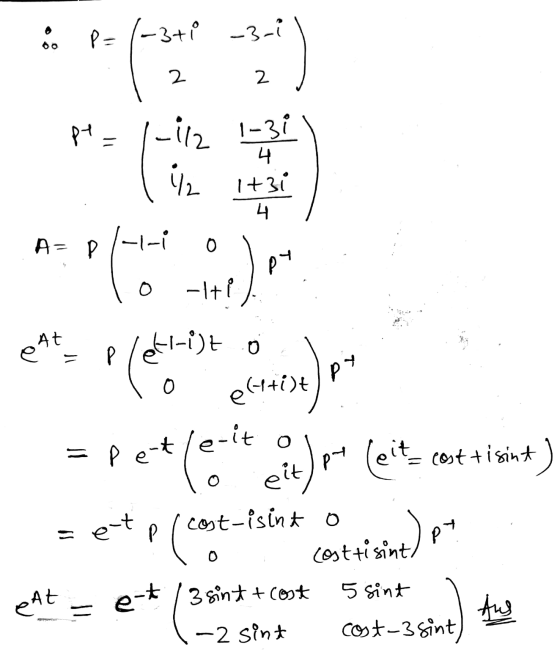 ∴ P = ( -3+i  -3-i
2  2 )
P⁻¹ = ( -i/2  (1-3i)/4
i/2  (1+3i)/4 )
A = P ( -1-i  0
0  -1+i ) P⁻¹
e^At = P ( e^(-1-i)t  0
0  e^(-1+i)t ) P⁻¹
= P e^-t ( e^-it  0
0  e^it ) P⁻¹ ( e^it = cost + i sint )
= e^-t P ( cost - i sint  0
0  cost + i sint ) P⁻¹
e^At = e^-t ( 3 sint + cost  5 sint
-2 sint  cost - 3 sint ) Ans